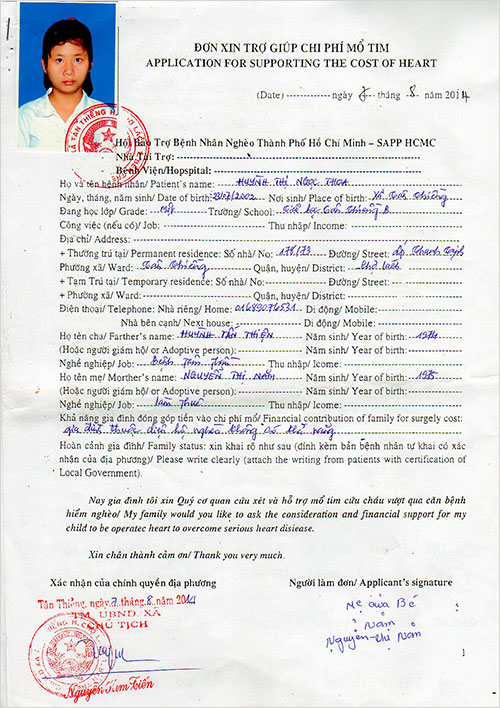 ĐƠN XIN TRỢ GIÚP CHI PHÍ MỔ TIM
APPLICATION FOR SUPPORTING THE COST OF HEART
(Date) ngày 7 tháng 8 năm 2014
Hội Bảo Trợ Bệnh Nhân Nghèo Thành Phố Hồ Chí Minh – SAPP HCMC
Nhà Tài Trợ:
Bệnh Viện/Hopspital:
Họ và tên bệnh nhân/ Patient's name: HUỲNH THỊ NGỌC THOA
Ngày, tháng, năm sinh/ Date of birth: /2002 Nơi sinh/ Place of birth: Xã Tân Thiềng
Đang học lớp/ Grade: Trường/ School: Tiểu học Tân Thiềng B
Công việc (nếu có)/ Job: Thu nhập/ Income:
Địa chỉ/ Address:
+ Thường trú tại/ Permanent residence: Số nhà/ No: 178/73 Đường/ Street: ấp Thanh
Phường xã/ Ward: Tân Thiềng Quận, huyện/ District: Chợ Lách
+ Tạm Trú tại/ Temporary residence: Số nhà/ No: Đường/ Street:
+ Phường xã/ Ward: Quận, huyện/ District:
Điện thoại/ Telephone: Nhà riêng/ Home: 01689076531 Di động/ Mobile:
Nhà bên cạnh/ Next house: Di động/ Mobile:
Họ tên cha/ Farther's name: HUỲNH TẤN THIỆN Năm sinh/ Year of birth: 1974
(Hoặc người giám hộ/ or Adoptive person): Năm sinh/ Year of birth:
Nghề nghiệp/ Job: Thu nhập/ Icome:
Họ tên mẹ/ Morther's name: NGUYỄN THỊ NĂM Năm sinh/ Year of birth: 1975
(Hoặc người giám hộ/ or Adoptive person): Năm sinh/ Year of birth:
Nghề nghiệp/ Job: Làm thuê Thu nhập/ Icome:
Khả năng gia đình đóng góp tiền vào chi phí mổ/ Financial contribution of family for surgely cost:
gia đình thuộc diện hộ nghèo không có khả năng
Hoàn cảnh gia đình/ Family status: xin khai rõ như sau (đính kèm bản bệnh nhân tự khai có xác
nhận của địa phương)/ Please write clearly (attach the writing from patients with certification of
Local Government).
Nay gia đình tôi xin Quý cơ quan cứu xét và hỗ trợ mổ tim cứu cháu vượt qua căn bệnh
hiểm nghèo/ My family would you like to ask the consideration and financial support for my
child to be operatec heart to overcome serious heart disiease.
Xin chân thành cảm ơn/ Thank you very much.
Xác nhận của chính quyền địa phương Người làm đơn/ Applicant's signature
Tân Thiềng, ngày 7 tháng 8 năm 2014
TM. UBND. XÃ
CHỦ TỊCH
Mẹ của Bé
Năm
Nguyễn Thị Năm
Nguyễn Kim Tiến